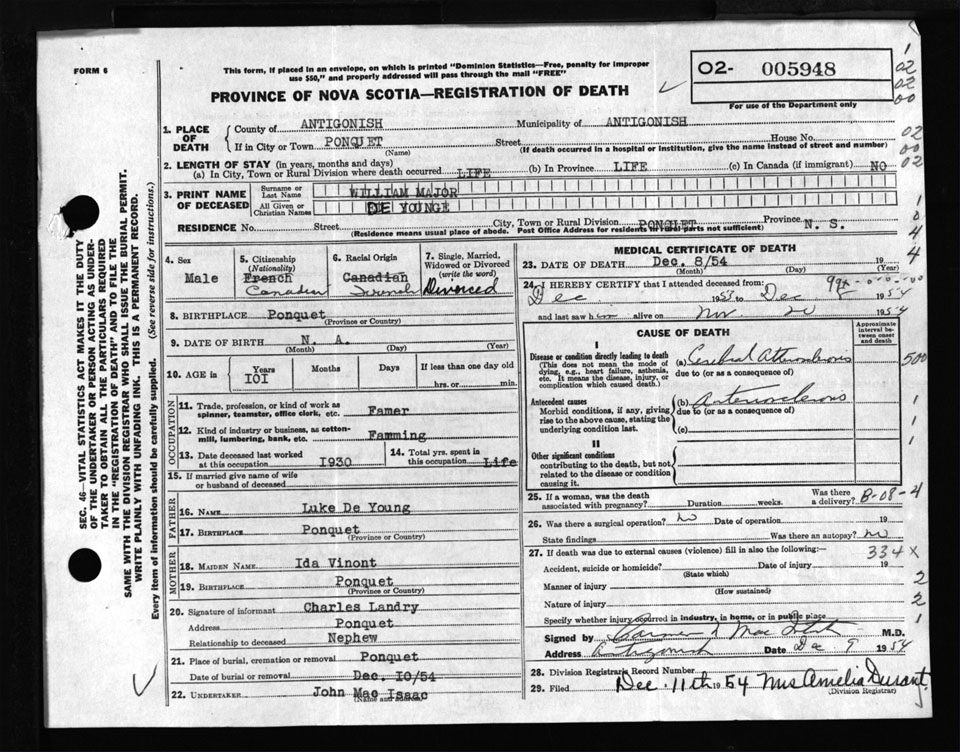 FORM 6
This form, if placed in an envelope, on which is printed "Dominion Statistics—Free, penalty for improper
use $50," and properly addressed will pass through the mail "FREE"
PROVINCE OF NOVA SCOTIA—REGISTRATION OF DEATH
02- 005948
For use of the Department only
1. PLACE OF DEATH
County of ANTIGONISH Municipality of ANTIGONISH
If in City or Town PONQUET Street House No.
(Name) (If death occurred in a hospital or institution, give the name instead of street and number)
2. LENGTH OF STAY (in years, months and days)
(a) In City, Town or Rural Division where death occurred LIFE (b) In Province LIFE (c) In Canada (if immigrant) NO
3. PRINT NAME OF DECEASED
Surname or Last Name WILLIAM MAJOR
All Given or Christian Names DE YOUNGE
RESIDENCE No. Street City, Town or Rural Division PONQUET Province N. S.
(Residence means usual place of abode. Post Office Address for residents in rural parts not sufficient)
4. Sex Male
5. Citizenship (Nationality) French Canadian
6. Racial Origin Canadian French
7. Single, Married, Widowed or Divorced (write the word) Divorced
8. BIRTHPLACE Ponquet
(Province or Country)
9. DATE OF BIRTH N. A.
(Month) (Day) (Year)
10. AGE in Years IOI Months Days If less than one day old hrs. or min.
OCCUPATION
11. Trade, profession, or kind of work as spinner, teamster, office clerk, etc. Famer
12. Kind of industry or business, as cotton-mill, lumbering, bank, etc. Famming
13. Date deceased last worked at this occupation I930
14. Total yrs. spent in this occupation Life
15. If married give name of wife or husband of deceased
FATHER
16. NAME Luke De Young
17. BIRTHPLACE Ponquet
(Province or Country)
MOTHER
18. MAIDEN NAME Ida Vinont
19. BIRTHPLACE Ponquet
(Province or Country)
20. Signature of informant Charles Landry
Address Ponquet
Relationship to deceased Nephew
21. Place of burial, cremation or removal Ponquet
Date of burial or removal Dec. IO/54
22. UNDERTAKER John Mac Isaac
(Name and address)
MEDICAL CERTIFICATE OF DEATH
23. DATE OF DEATH Dec. 8/54 19
(Month) (Day) (Year)
24. I HEREBY CERTIFY that I attended deceased from:
Dec 1953 to Dec 1954
and last saw h im alive on Nov 20 1954
CAUSE OF DEATH
Approximate interval between onset and death
I
Disease or condition directly leading to death
(This does not mean the mode of dying, e.g., heart failure, asthenia, etc. It means the disease, injury, or complication which caused death.)
(a) Cerebral
due to (or as a consequence of)
Antecedent causes
Morbid conditions, if any, giving rise to the above cause, stating the underlying condition last.
(b) Arteriosclerosis
due to (or as a consequence of)
(c)
II
Other significant conditions
contributing to the death, but not related to the disease or condition causing it.
25. If a woman, was the death associated with pregnancy? Duration weeks. Was there a delivery?
B-08-4
26. Was there a surgical operation? no Date of operation 19
State findings Was there an autopsy? no
27. If death was due to external causes (violence) fill in also the following:— 334X
Accident, suicide or homicide? Date of injury 19
(State which)
Manner of injury
(How sustained)
Nature of injury
Specify whether injury occurred in industry, in home, or in public place
Signed by M.D.
Address Antigonish Date Dec 9 1954
28. Division Registrar's Record Number
29. Filed Dec. 11th 1954 Mrs Amelia Durant
(Division Registrar)
SEC. 46—VITAL STATISTICS ACT MAKES IT THE DUTY
OF THE UNDERTAKER OR PERSON ACTING AS UNDER-
TAKER TO OBTAIN ALL THE PARTICULARS REQUIRED
IN THE "REGISTRATION OF DEATH" AND TO FILE THE
SAME WITH THE DIVISION REGISTRAR WHO SHALL ISSUE THE BURIAL PERMIT.
WRITE PLAINLY WITH UNFADING INK. THIS IS A PERMANENT RECORD.
Every item of information should be carefully supplied. (See reverse side for instructions.)
1
02
02
00
02
00
02
1
0
4
4
500
1
1
1
2
2
1